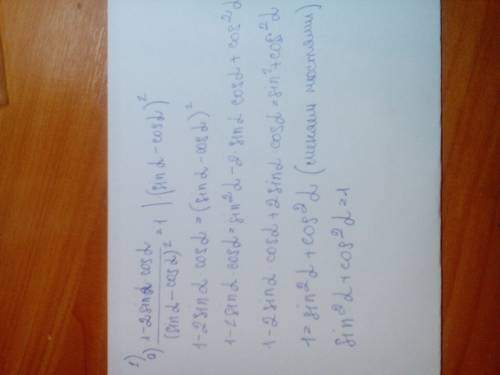 1)
a) (1-2sinα cosα)/(sinα-cosα)² = 1 | ·(sinα-cosα)²
1-2sinα cosα = (sinα-cosα)²
1-2sinα cosα = sin²α-2·sinα cosα + cos²α
1-2sinα cosα + 2sinα cosα = sin²+cos²α
1 = sin²α + cos²α (меняем местами)
sin²α + cos²α = 1